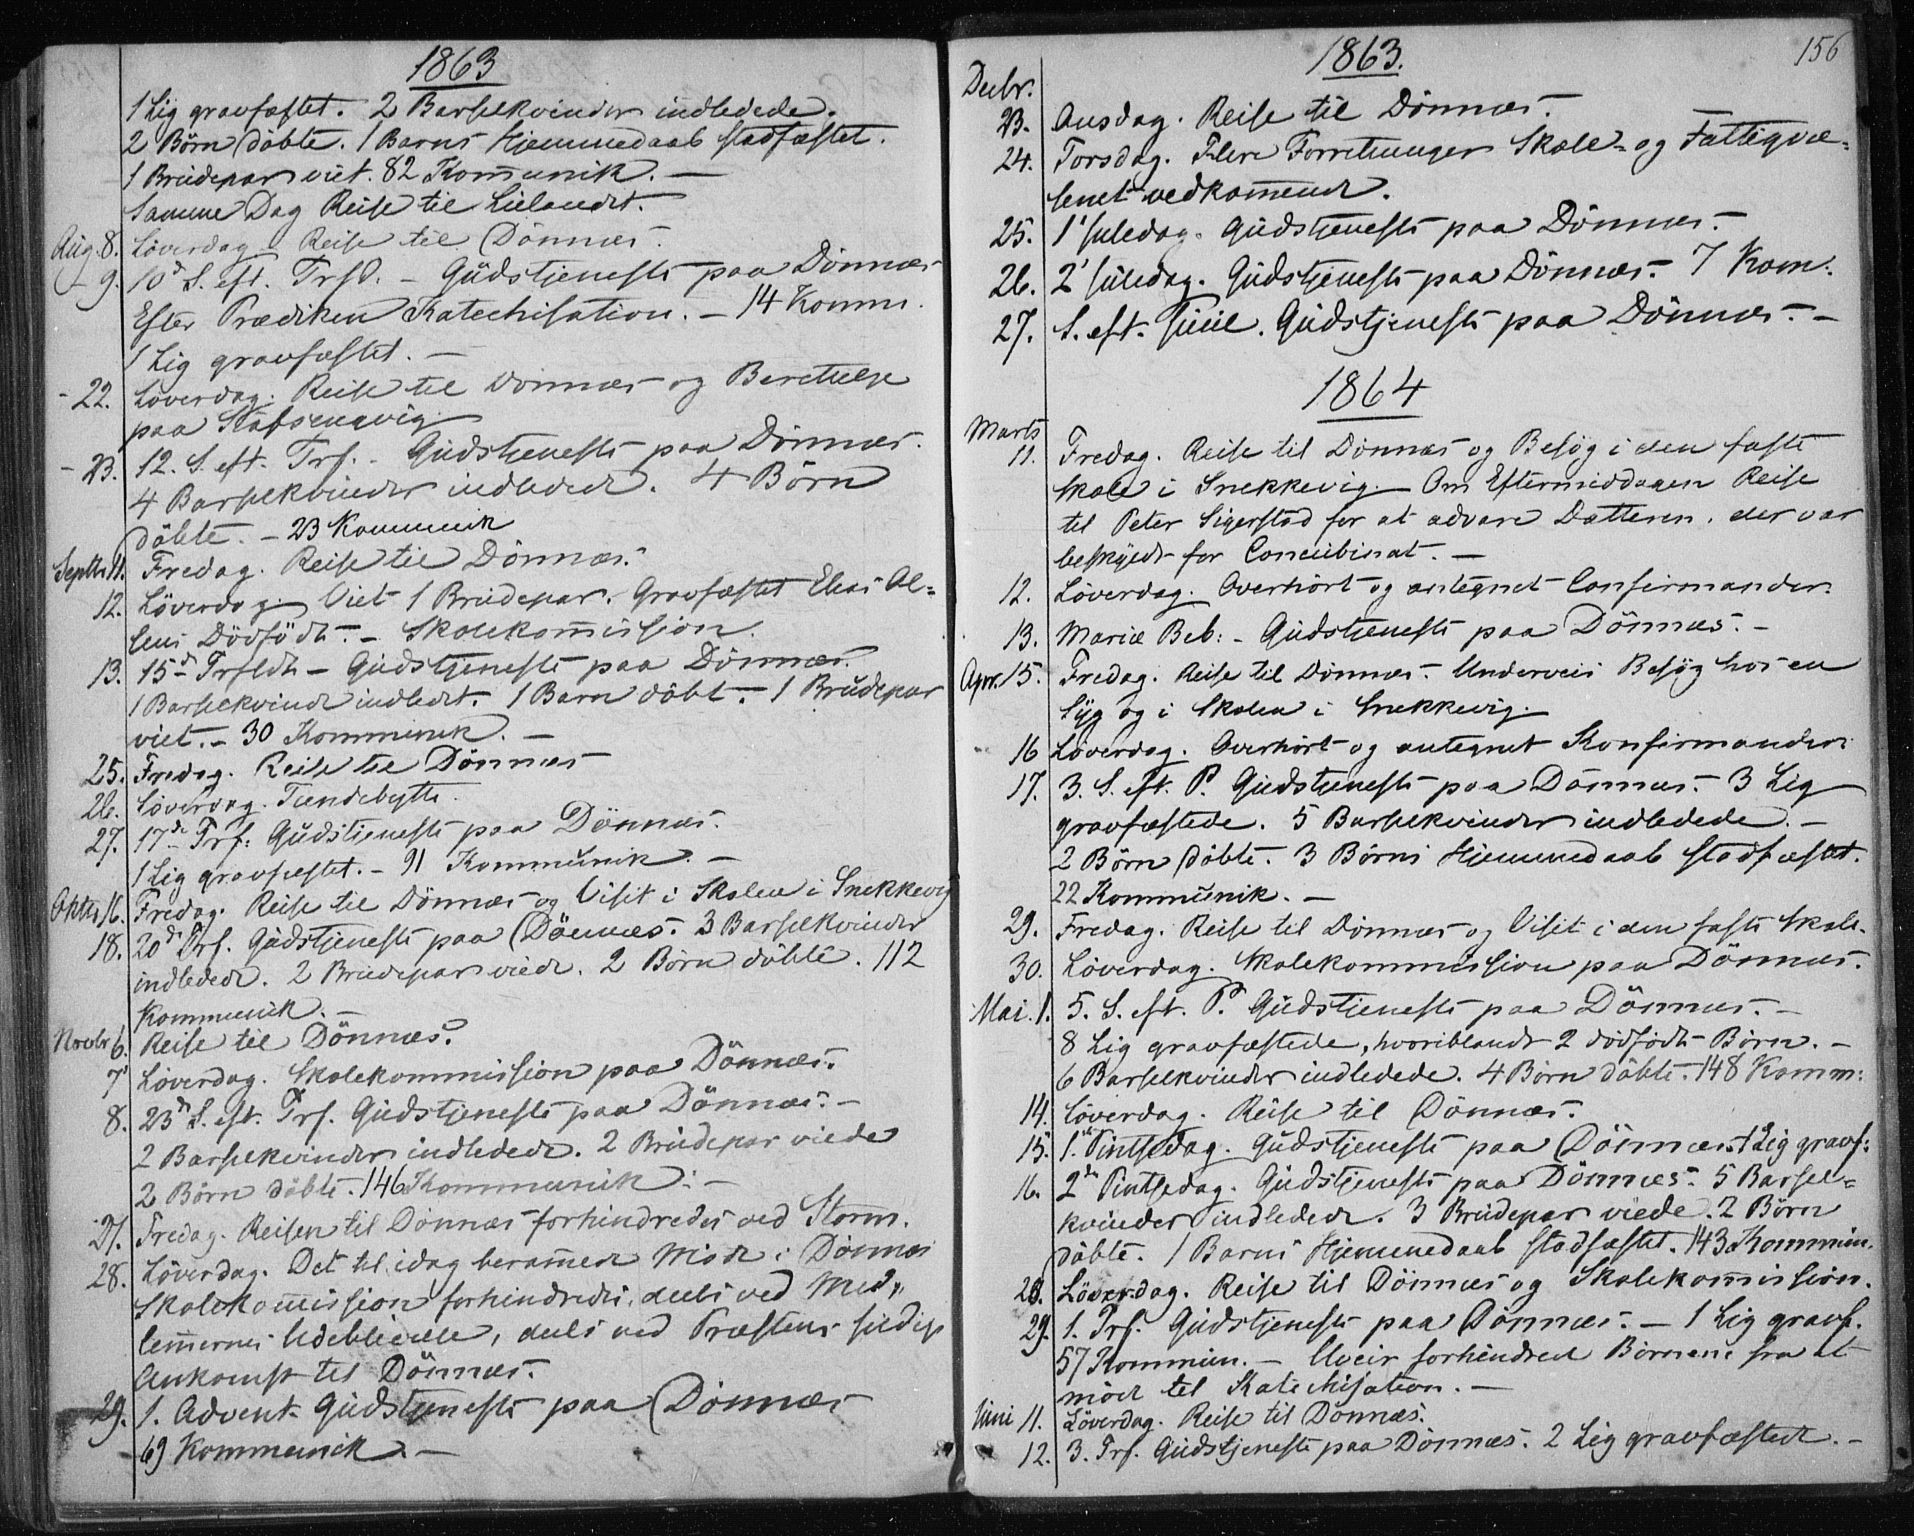 1863
1 Lig gravfæstet. 2 Barselkvinder indledede.
2 Børn døbte. 1 Barns Hjemmedaab stadfæstet.
1 Brudepar viet. 82 Kom̄unik. —
Samme Dag Reise til Lielandet.
Aug. 8. Løverdag Reise til Dönnæs.
- 9. 10d S. eft. Trfd. – Gudstjeneste paa Dönnæs
Efter Prædiken Katechisation. – 14 Komm.
1 Lig gravfæstet. —
- 22. Løverdag. Reise til Dönnæs og Berettelse
paa
- 23. 12. S. eft. Trf. Gudstjeneste paa Dönnæs.
4 Barselkvinder indledede. 4 Børn
døbte. – 23 Kommunik
Septbr 11. Fredag. Reise til Dönnæs.
12. Löverdag. Viet 1 Brudepar. Gravfæstet Elias Ol=
sens Dödfödte. – Skolekom̄ission.
13. 15de Trfldt – Gudstjeneste paa Dönnæs.
1 Barselkvinde indledet. 1 Barn döbt. – 1 Brudepar
viet. – 30 Kommunik. —
25. Fredag. Reise til Dönnæs
26. Löverdag. Tiendebytte.
27. 17de Trf: Gudstjeneste paa Dönnæs.
1 Lig gravfæstet. – 91 Kommunik. —
Oktbr 16. Fredag. Reise til Dönnæs og Visit i Skolen i Snekkevig
18. 20de Trf. Gudstjeneste paa Dönnæs. 3 Barselkvinder
indledede. 2 Brudepar viede. 2 Börn döbte. 112
Kommunik. —
Novbr 6. Reise til Dönnæs.
7. Löverdag. Skolekommission paa Dönnæs.
8. 23de S. eft. Trf. Gudstjeneste paa Dönnæs. —
2 Barselkvinder indledede. 2 Brudepar viede
2 Börn döbte. 146 Kommunik. —
27. Fredag. Reisen til Dönnæs forhindredes ved Storm.
28. Löverdag. Det til idag beram̄ede Möde i Dönnæs
Skolekom̄ission forhindredes, deels ved Med=
lem̄ernes Udeblivelse, deels ved Præstens sildige
Ankomst til Dönnæs.
29. 1. Advent. Gudstjeneste paa Dönnæs
69 Kommunik. —
156
1863.
Decbr.
23. Onsdag. Reise til Dönnæs.
24. Torsdag. Flere Forretninger Skole- og Fattigvæ=
senet vedkom̄ende.
25. 1' Juledag. Gudstjeneste paa Dönnæs. —
26. 2' Juledag. Gudstjeneste paa Dönnæs. – 7 Kom.
27. S. eft. Juul. Gudstjeneste paa Dönnæs. —
1864
Marts
11. Fredag. Reise til Dönnæs og Besög i den faste
Skole i Snekkevig. Om Eftermiddagen Reise
til Peter Sigerstad for at advare Datteren, der var
beskyldt for Concubinat. —
12. Löverdag. Overhört og antegnet Confirmander.
13. Mariæ Beb: – Gudstjeneste paa Dönnæs. —
Apr. 15. Fredag. Reise til Dönnæs. Underveis Besög hos en
Syg og i Skolen i Snekkevig.
16 Löverdag. Overhört og antegnet Konfirmander
17. 3. S. eft. P. Gudstjeneste paa Dönnæs. – 3 Lig
gravfæstede. 5 Barselkvinder indledede. —
2 Börn döbte. 3 Börns Hjemmedaab stadfæstet.
22 Kommunik. —
29. Fredag. Reise til Dönnæs og Visit i den faste Skole.
30. Löverdag. Skolekommission paa Dönnæs.
Mai. 1. 5. S. eft. P. Gudstjeneste paa Dönnæs. —
8 Lig gravfæstede, hvoriblandt 2 dödfödte Börn. —
6 Barselkvinder indledede. 4 Börn döbte. 148 Komm:
14. Löverdag. Reise til Dönnæs.
15. 1ste Pintsedag. Gudstjeneste paa Dönnæs. 1 Lig gravf:
16. 2den Pintsedag. Gudstjeneste paa Dönnæs. 5 Barsel=
kvinder indledede. 3 Brudepar viede. 2 Börn
döbte. 1 Barns Hjemmedaab stadfæstet. 143 Kommun.
28. Löverdag. Reise til Dönnæs og Skolekom̄ission.
29. 1. Trf. Gudstjeneste paa Dönnæs. — 1 Lig gravf.
57 Kommun. — Uveir forhindred Börnene fra at
möde til Katechisation. —
Juni 11. Löverdag. Reise til Dönnæs.
12. 3. Trf. Gudstjeneste paa Dönnæs. 2 Lig gravfæstede. —